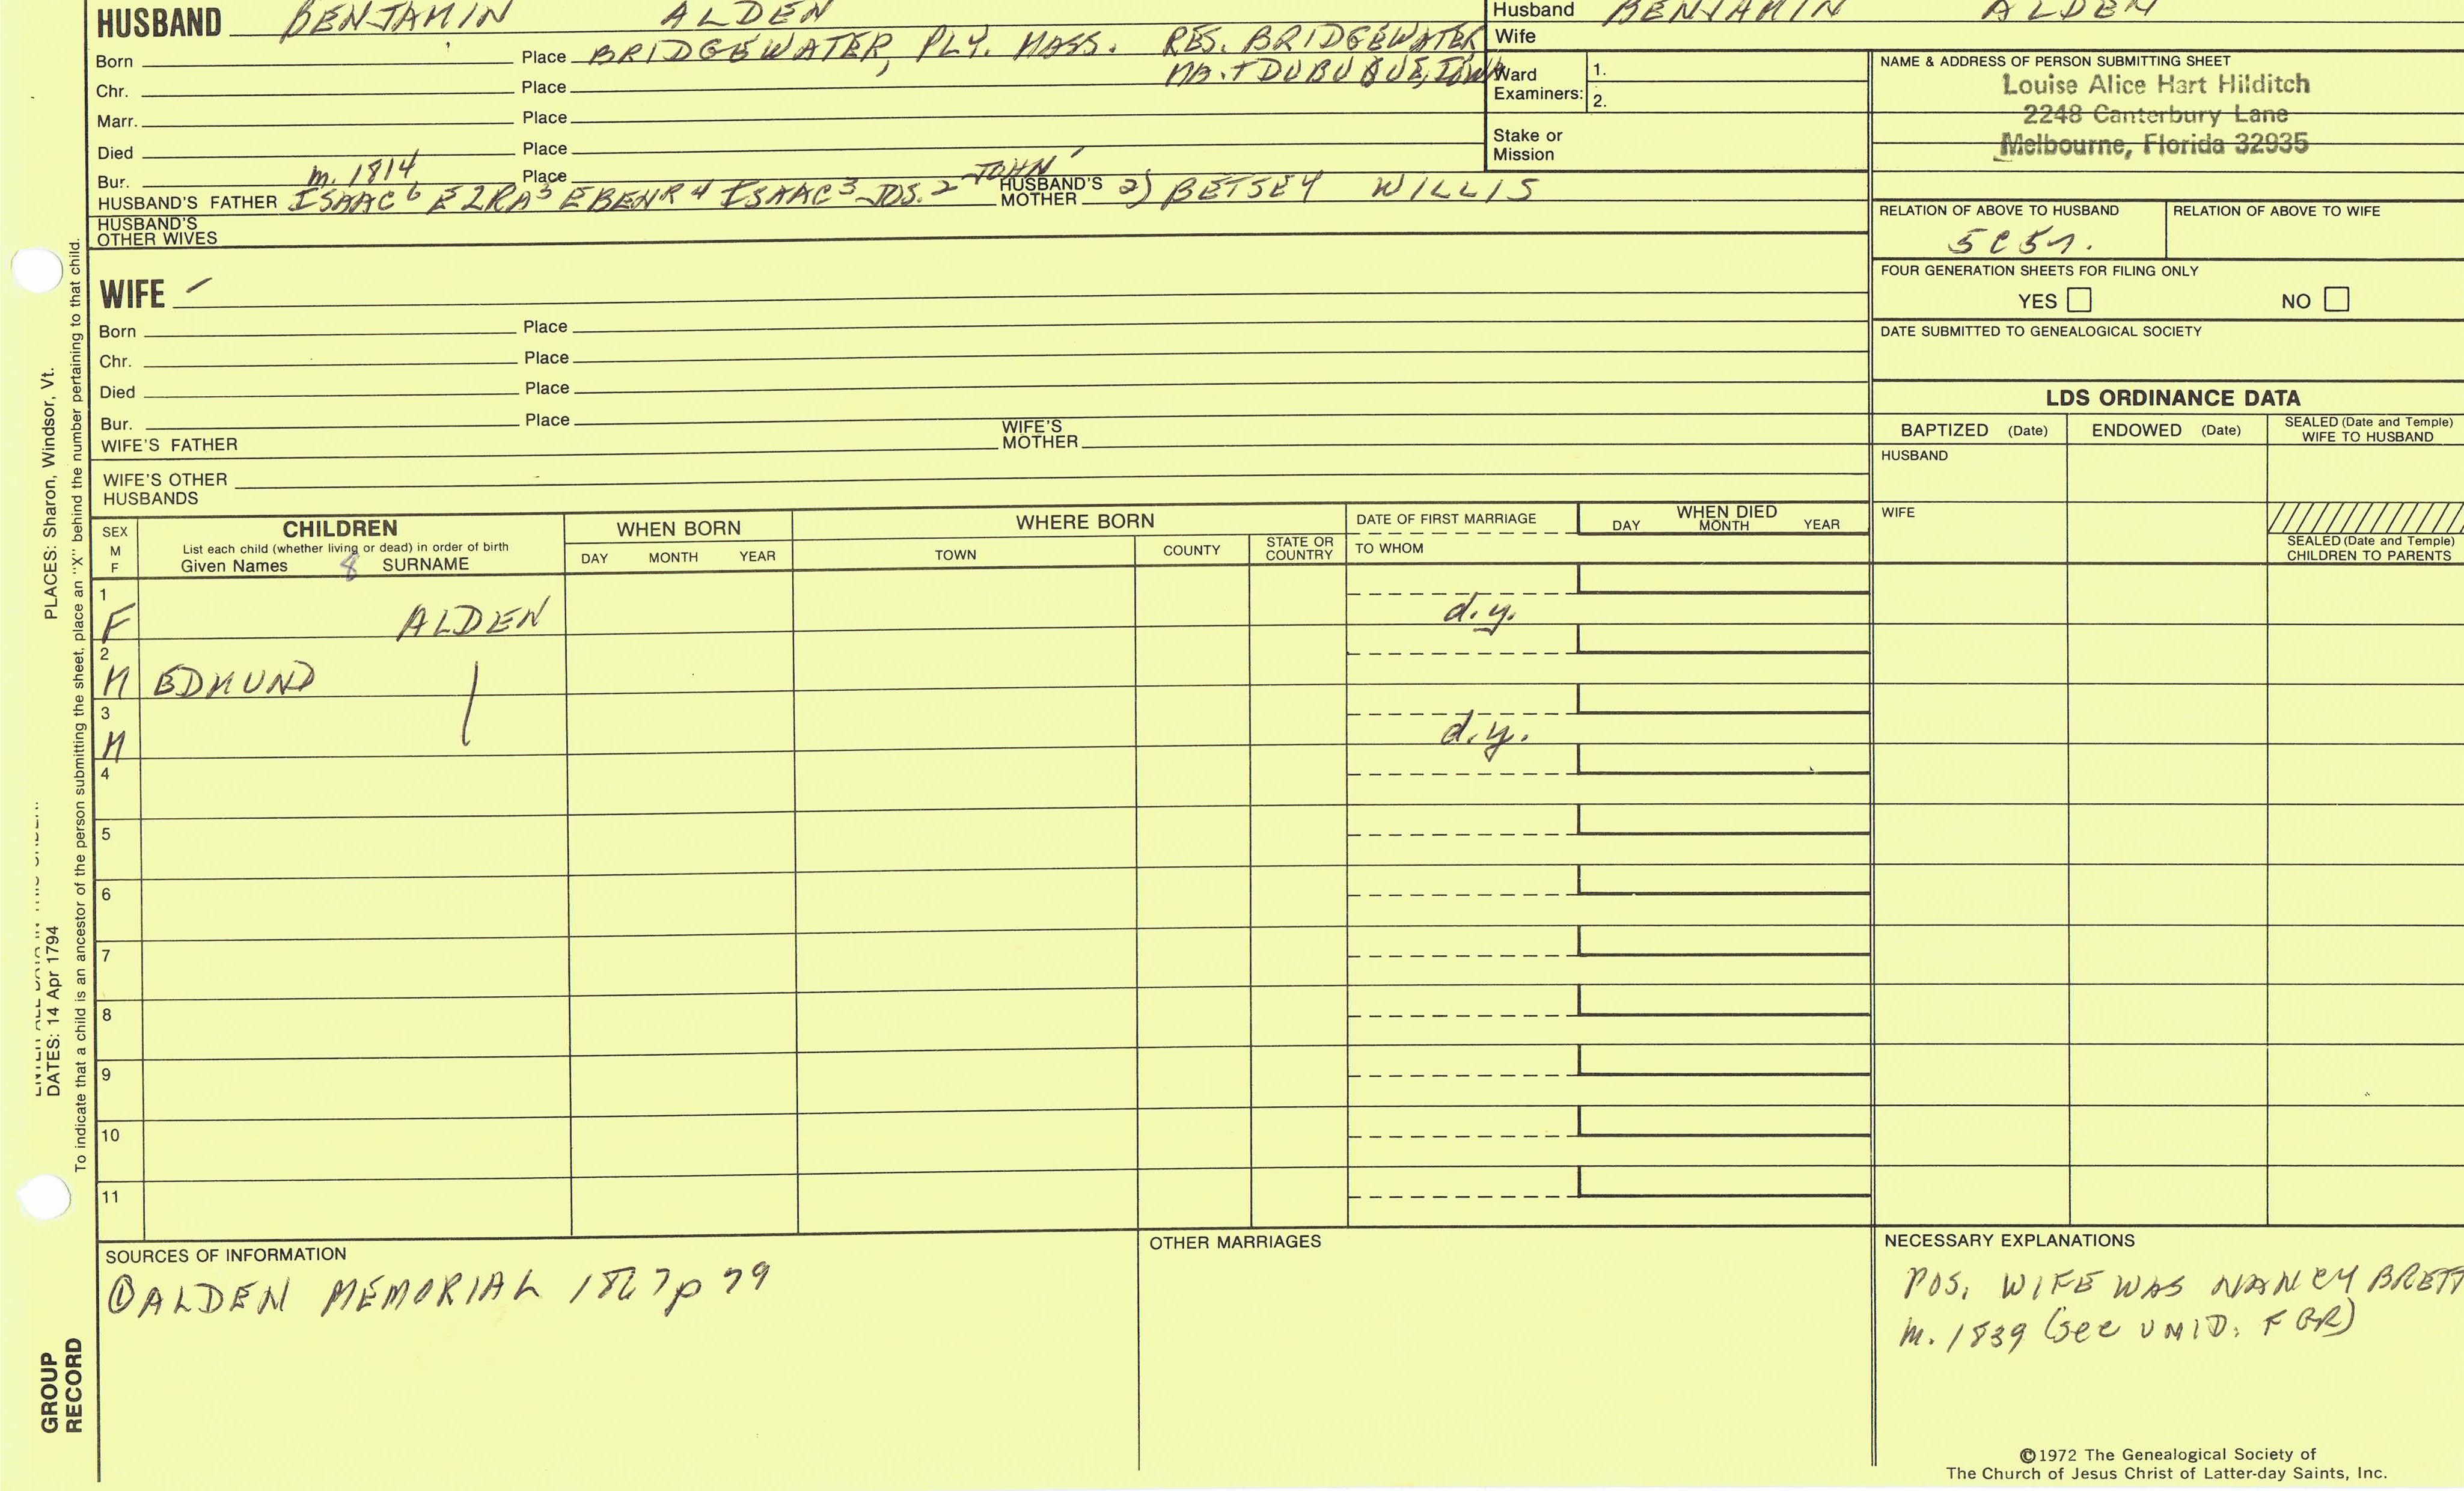 HUSBAND BENJAMIN ALDEN
Husband BENJAMIN ALDEN
Wife
Born Place BRIDGEWATER, PLY. MASS. RES. BRIDGEWATER
MA. + DUBUQUE, IOWA
Chr. Place
Marr. Place
Died Place
Bur. m. 1814 Place
HUSBAND'S FATHER ISAAC 6 EZRA 5 EBENR 4 ISAAC 3 JOS. 2 JOHN 1 HUSBAND'S MOTHER 2) BETSEY WILLIS
HUSBAND'S OTHER WIVES
Ward Examiners: 1.
2.
Stake or Mission
NAME & ADDRESS OF PERSON SUBMITTING SHEET
Louise Alice Hart Hilditch
2248 Canterbury Lane
Melbourne, Florida 32935
RELATION OF ABOVE TO HUSBAND RELATION OF ABOVE TO WIFE
5C5
FOUR GENERATION SHEETS FOR FILING ONLY
YES NO
DATE SUBMITTED TO GENEALOGICAL SOCIETY
WIFE
Born Place
Chr. Place
Died Place
Bur. Place
WIFE'S FATHER WIFE'S MOTHER
WIFE'S OTHER HUSBANDS
LDS ORDINANCE DATA
BAPTIZED (Date) ENDOWED (Date) SEALED (Date and Temple) WIFE TO HUSBAND
HUSBAND
WIFE
SEALED (Date and Temple) CHILDREN TO PARENTS
SEX M F
CHILDREN
List each child (whether living or dead) in order of birth
Given Names 8 SURNAME
WHEN BORN
DAY MONTH YEAR
WHERE BORN
TOWN COUNTY STATE OR COUNTRY
DATE OF FIRST MARRIAGE
TO WHOM
WHEN DIED
DAY MONTH YEAR
1 F ALDEN d.y.
2 M EDMUND
3 M d.y.
4
5
6
7
8
9
10
11
SOURCES OF INFORMATION
① ALDEN MEMORIAL 1867 p 79
OTHER MARRIAGES
NECESSARY EXPLANATIONS
POS. WIFE WAS NANCY BRETT
m. 1839 (see UNID. FGR)
©1972 The Genealogical Society of
The Church of Jesus Christ of Latter-day Saints, Inc.
PLACES: Sharon, Windsor, Vt.
DATES: 14 Apr 1794
To indicate that a child is an ancestor of the person submitting the sheet, place an "X" behind the number pertaining to that child.
GROUP
RECORD